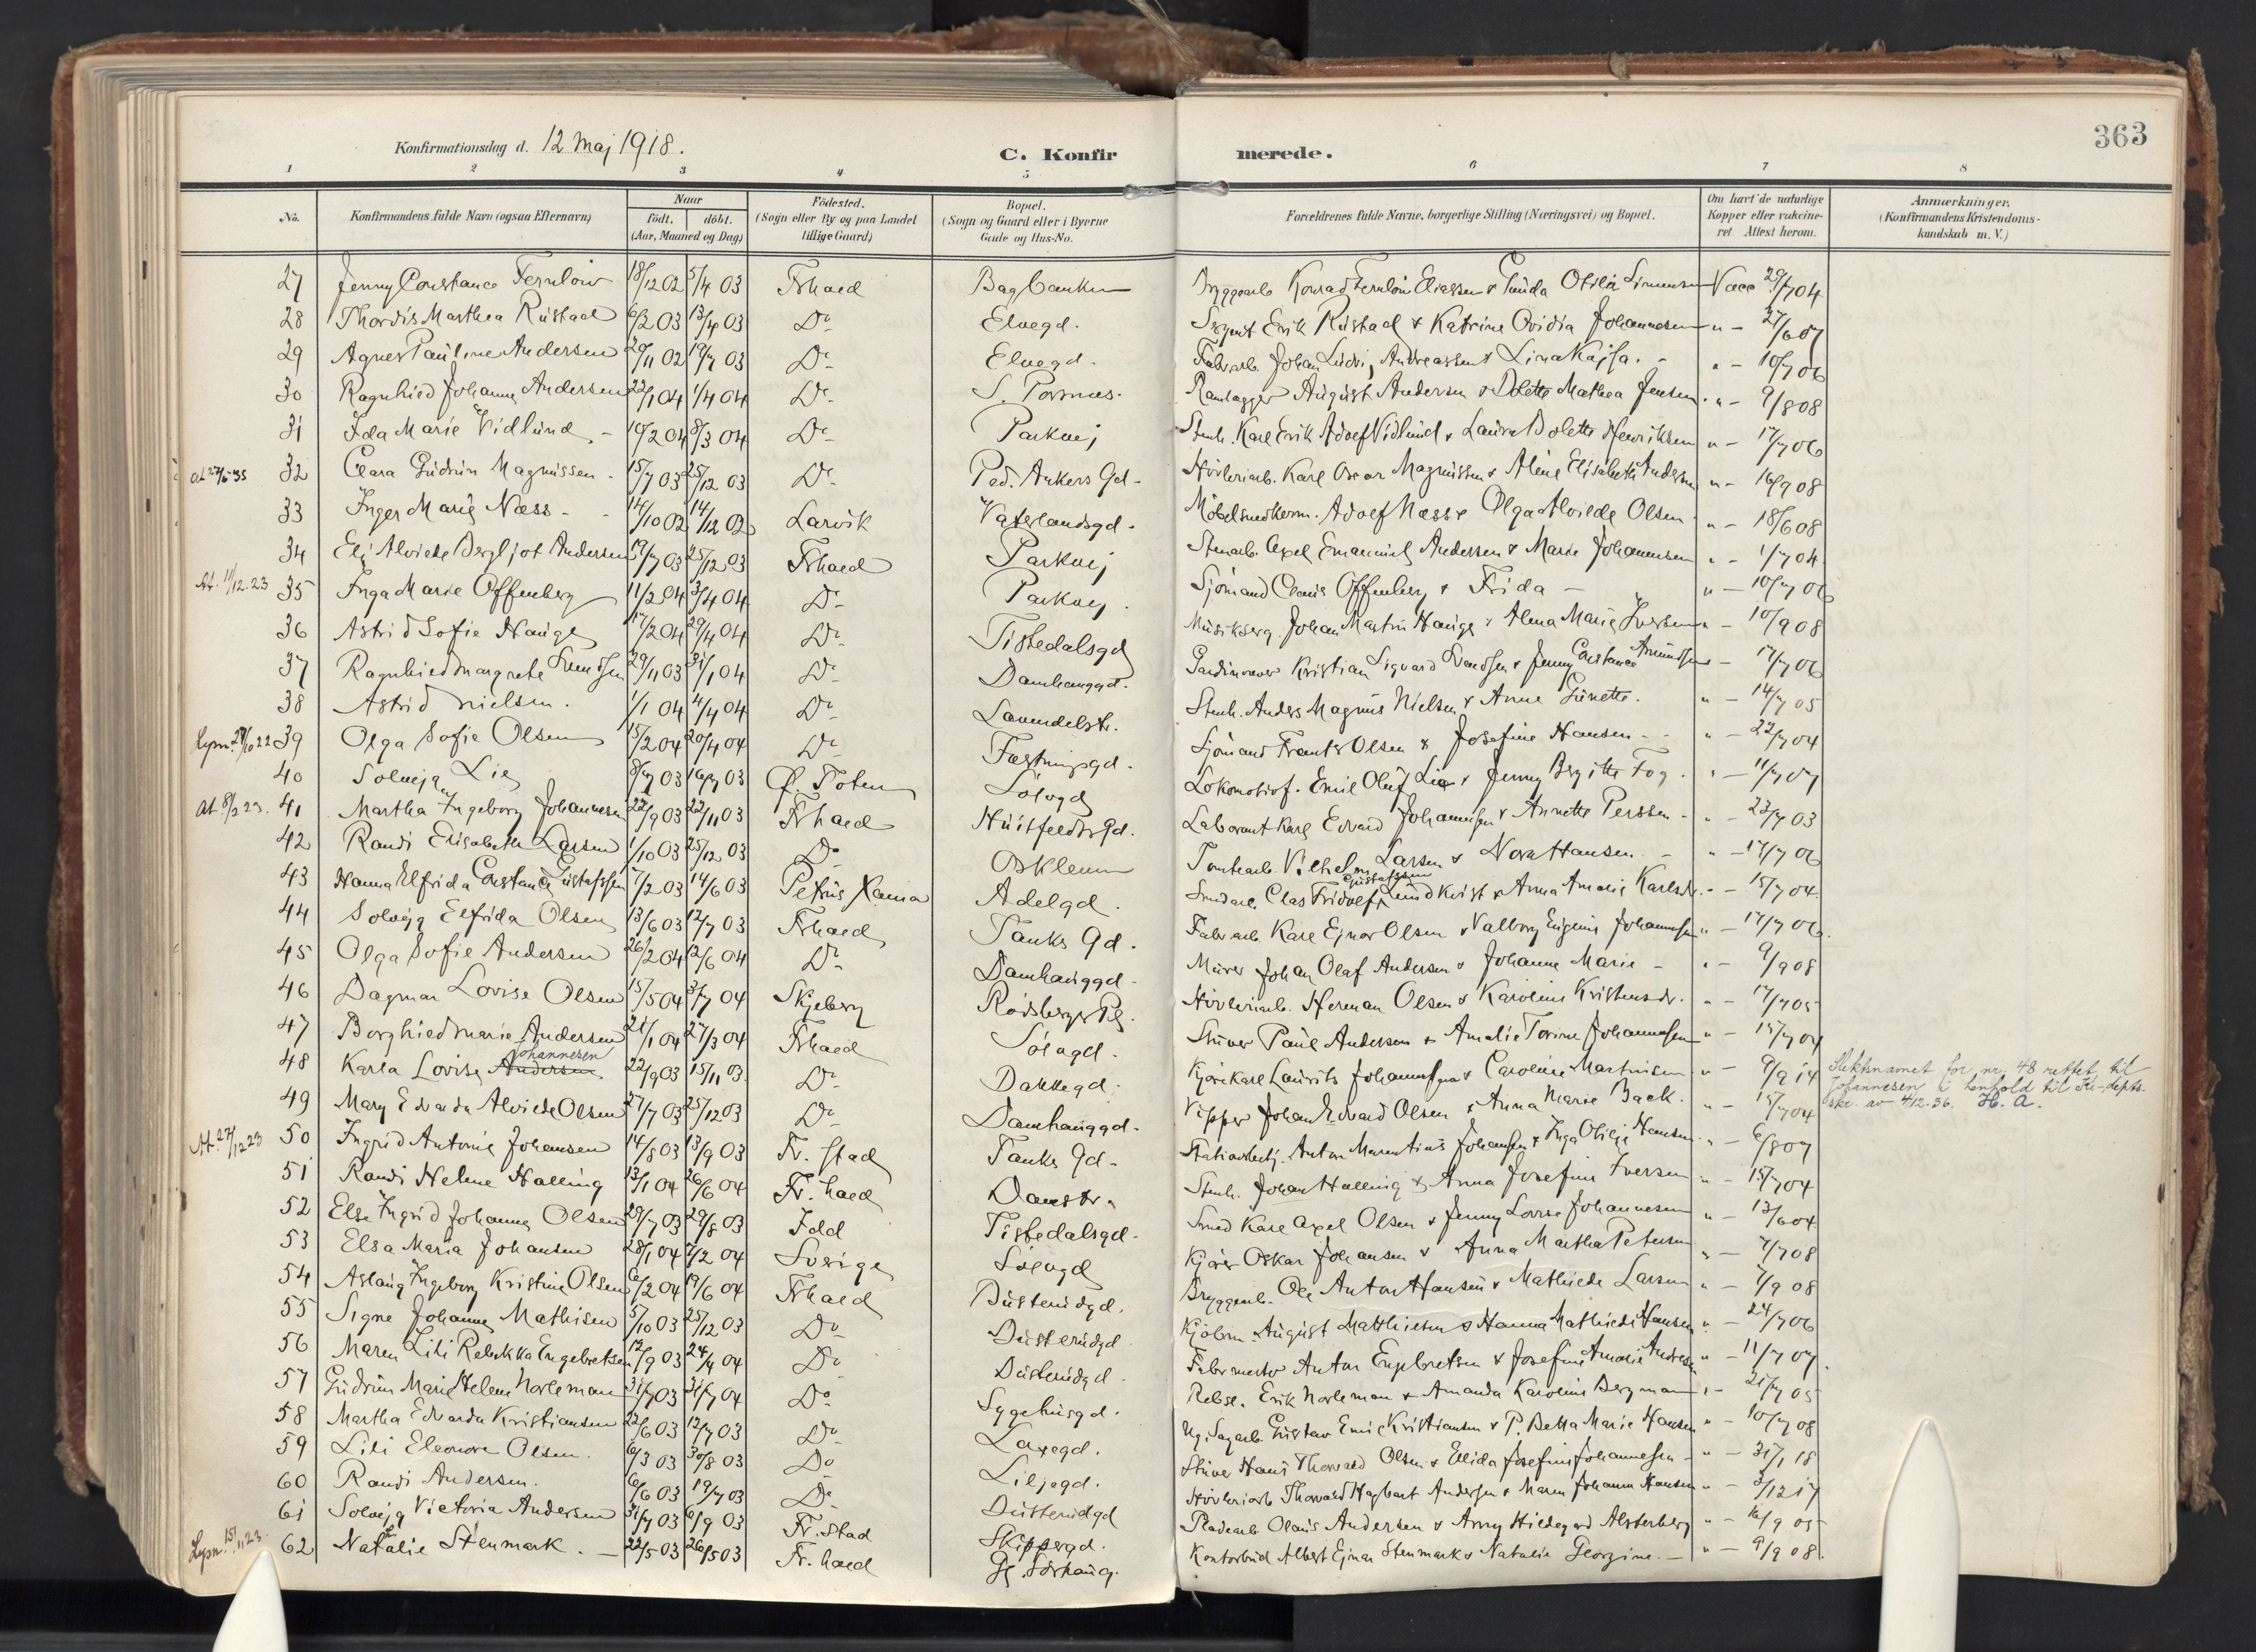 363
Konfirmationsdag d. 12 Maj 1918.
C. Konfirmerede.
1 2 3 4 5 6 7 8
No.
Konfirmandens fulde Navn (ogsaa Efternavn)
Naar
født. døbt.
(Aar, Maaned og Dag)
Fødested.
(Sogn eller By og paa Landet
tillige Gaard)
Bopæl.
(Sogn og Gaard eller i Byerne
Gade og Hus-No.
Forældrenes fulde Navne, borgerlige Stilling (Næringsvei) og Bopæl.
Om havt de naturlige
Kopper eller vakcine-
ret. Attest herom.
Anmærkninger.
(Konfirmandens Kristendoms-
kundskab m. V.)
27 Jenny Constance Fernlow 18/12 02 5/4 03 Frhald Bagbanken Konrad Fernlow Eliassen & Gunda Otilia Simensen Vacc 29/7 04
28 Thordis Marthea Rustad 6/2 03 13/4 03 Do Elvegd. Erik Rustad & Katrine Ovidia Johannesen " - 27/6 07
29 Agnes Pauline Andersen 20/11 02 19/7 03 Do Elvegd. Fabrarb. Johan Ludvig Andreassen & Lina Kajsa. " - 10/7 06
30 Ragnhild Johanne Andersen 22/1 04 4/4 04 Do August Andersen & Dolette Mathea Jensen " - 9/8 08
31 Ida Marie Vidlund 10/2 04 8/3 04 Do Parkvej Stenh. Karl Erik Adolf Vidlund & Laura Bolette Henriksen " - 17/7 06
At 27/6 35 32 Clara Gudrun Magnussen 15/7 03 25/12 03 Do Ped. Ankers Gd. Høvleriarb. Karl Oscar Magnussen & Aline Elisabeth Andersen " - 16/9 08
33 Inger Marie Næss 14/10 02 14/12 02 Larvik Vaterlandsgd. Møbelsnedkerm. Adolf Næss & Olga Alvilde Olsen " - 18/6 08
34 Eli Alvilde Bergljot Andersen 17/7 03 25/12 03 Frhald Parkvej Stenarb. Axel Emanuel Andersen & Marie Johannesen " - 1/7 04
At. 11/12.23 35 Inga Marie Offenberg 11/2 04 3/4 04 Do Parkvej Sjømand Claus Offenberg & Frida " - 10/7 06
36 Astrid Sofie Hauge 17/2 04 29/4 04 Do Tistedalsgd Musikserg. Johan Martin Hauge & Alma Marie Iversen " - 10/9 08
37 Ragnhild Margrete Svendsen 29/11 03 31/1 04 Do Damhauggd. Kristian Sigvard Svendsen & Jenny Constance Amundsen " - 17/7 06
38 Astrid Nielsen 1/1 04 4/4 04 Do Lavendelstr. Stenh. Anders Magnus Nielsen & Anne Gunette. " - 14/7 05
39 Olga Sofie Olsen 15/2 04 20/4 04 Do Fæstningsgd. Sjømand Frants Olsen & Josefine Hansen " - 22/7 04
40 Solveig Lie 8/7 03 16/7 03 Ø. Toten Sølvgd Lokomotivf. Emil Oluf Lie & Jenny Birgitte Fog. " - 11/7 07
At. 8/2 23. 41 Martha Ingeborg Johannesen 22/9 03 22/11 03 Frhald Huitfeldts Gd. Laborant Karl Edvard Johannesen & Annette Perssen " - 23/7 03
42 Randi Elisabeth Larsen 1/10 03 25/12 03 Do Oskleven Tomtearb. Vilhelm Larsen & Nora Hansen " - 17/7 06
43 Hanna Elfrida Constance Gustafsen 7/2 03 14/6 03 Petrus Xania Adelgd. Clas Fridolf Gustafsen Lundkvist & Anna Amalie Karlsdr. " - 15/7 04
44 Solveig Elfrida Olsen 13/6 03 12/7 03 Frhald Tanks Gd. Fabrarb. Karl Ejnar Olsen & Valborg Eugenie Johannesen " - 17/7 06
45 Olga Sofie Andersen 26/2 04 12/6 04 Do Damhauggd. Murer Johan Olaf Andersen & Johanne Marie " - 9/9 08
46 Dagmar Lovise Olsen 15/5 04 3/7 04 Skjeberg Rødsbergs Pl. Høvleriarb. Herman Olsen & Karoline Kristensdr. " - 17/7 05
47 Borghild Marie Andersen 21/1 04 27/3 04 Frhald Sølvgd. Stuver Paul Andersen & Amalie Torine Johannesen " - 15/7 04
48 Karla Lovise Andersen Johannesen 22/9 03 15/11 03 Do Dakkegd. Kjørekarl Laurits Johannesen & Caroline Martinsen " - 9/9 14
Slektsnavnet for nr. 48 rettet til
Johannesen i henhold til Ki-depts.
skr. av 4/12.36. H. A.
49 Mary Edvarda Alvilde Olsen 27/7 03 25/12 03 Do Damhauggd. Vipper Johan Edvard Olsen & Anna Marie Back. " - 15/7 04
At. 27/12 23 50 Ingrid Antonie Johansen 14/8 03 13/9 03 Fr. stad Tanks Gd. Stationsbetj. Anton Marentius Johansen & Inga Otilie Hansen " - 6/8 07
51 Randi Helene Halling 13/1 04 26/6 04 Fr. hald Damstr. Stenh. Johan Halling & Anna Josefine Iversen " - 15/7 04
52 Else Ingrid Johanne Olsen 29/7 03 29/8 03 Idd Tistedalsgd. Smed Karl Axel Olsen & Jenny Lovise Johannesen " - 13/6 04
53 Elsa Maria Johansen 28/1 04 7/2 04 Sverige Sølvgd Kjører Oskar Johansen & Anna Martha Petersen " - 7/7 08
54 Aslaug Ingeborg Kristine Olsen 6/2 04 19/6 04 Frhald Busterudgd. Bryggarb. Ole Anton Hansen & Mathilde Larsen " - 7/9 08
55 Signe Johanne Mathisen 5/10 03 25/12 03 Do Busterudgd Kjøbm. August Matthisen & Hanna Mathilde Hansen " - 24/7 06
56 Maren Lili Rebekka Engebretsen 12/9 03 24/4 04 Do Busterudgd. Anton Engebretsen & Josefine Amalie Andersen " - 11/7 07
57 Gudrun Marie Helene Norleman 31/7 03 31/7 04 Do Sygehusgd. Erik Norleman & Amanda Karoline Bergman " - 21/7 05
58 Martha Edvarda Kristiansen 22/6 03 12/7 03 Do Laxegd. Ug. Sagarb. Gustav Emil Kristiansen & P. Betta Marie Hansen " - 10/7 08
59 Lili Eleonore Olsen. 6/3 03 30/8 03 Do Liljegd. Stuver Hans Thorvald Olsen & Elida Josefine Johannesen " - 31/1 18
60 Randi Andersen. 6/6 03 19/7 03 Do Busterudgd Høvleriarb Thorvald Hagbart Andersen & Maren Johanne Hansen " - 3/12 17
61 Solveig Victoria Andersen 31/7 03 6/9 03 Fr. stad Skippergd. Pladearb. Olaus Andersen & Anny Hildegard Alsterberg " - 16/9 05
Lysn. 15/11 23. 62 Natalie Stenmark. 22/5 03 26/5 03 Fr. hald Kontorbud Albert Ejnar Stenmark & Natalie Georgine. " - 9/9 08.